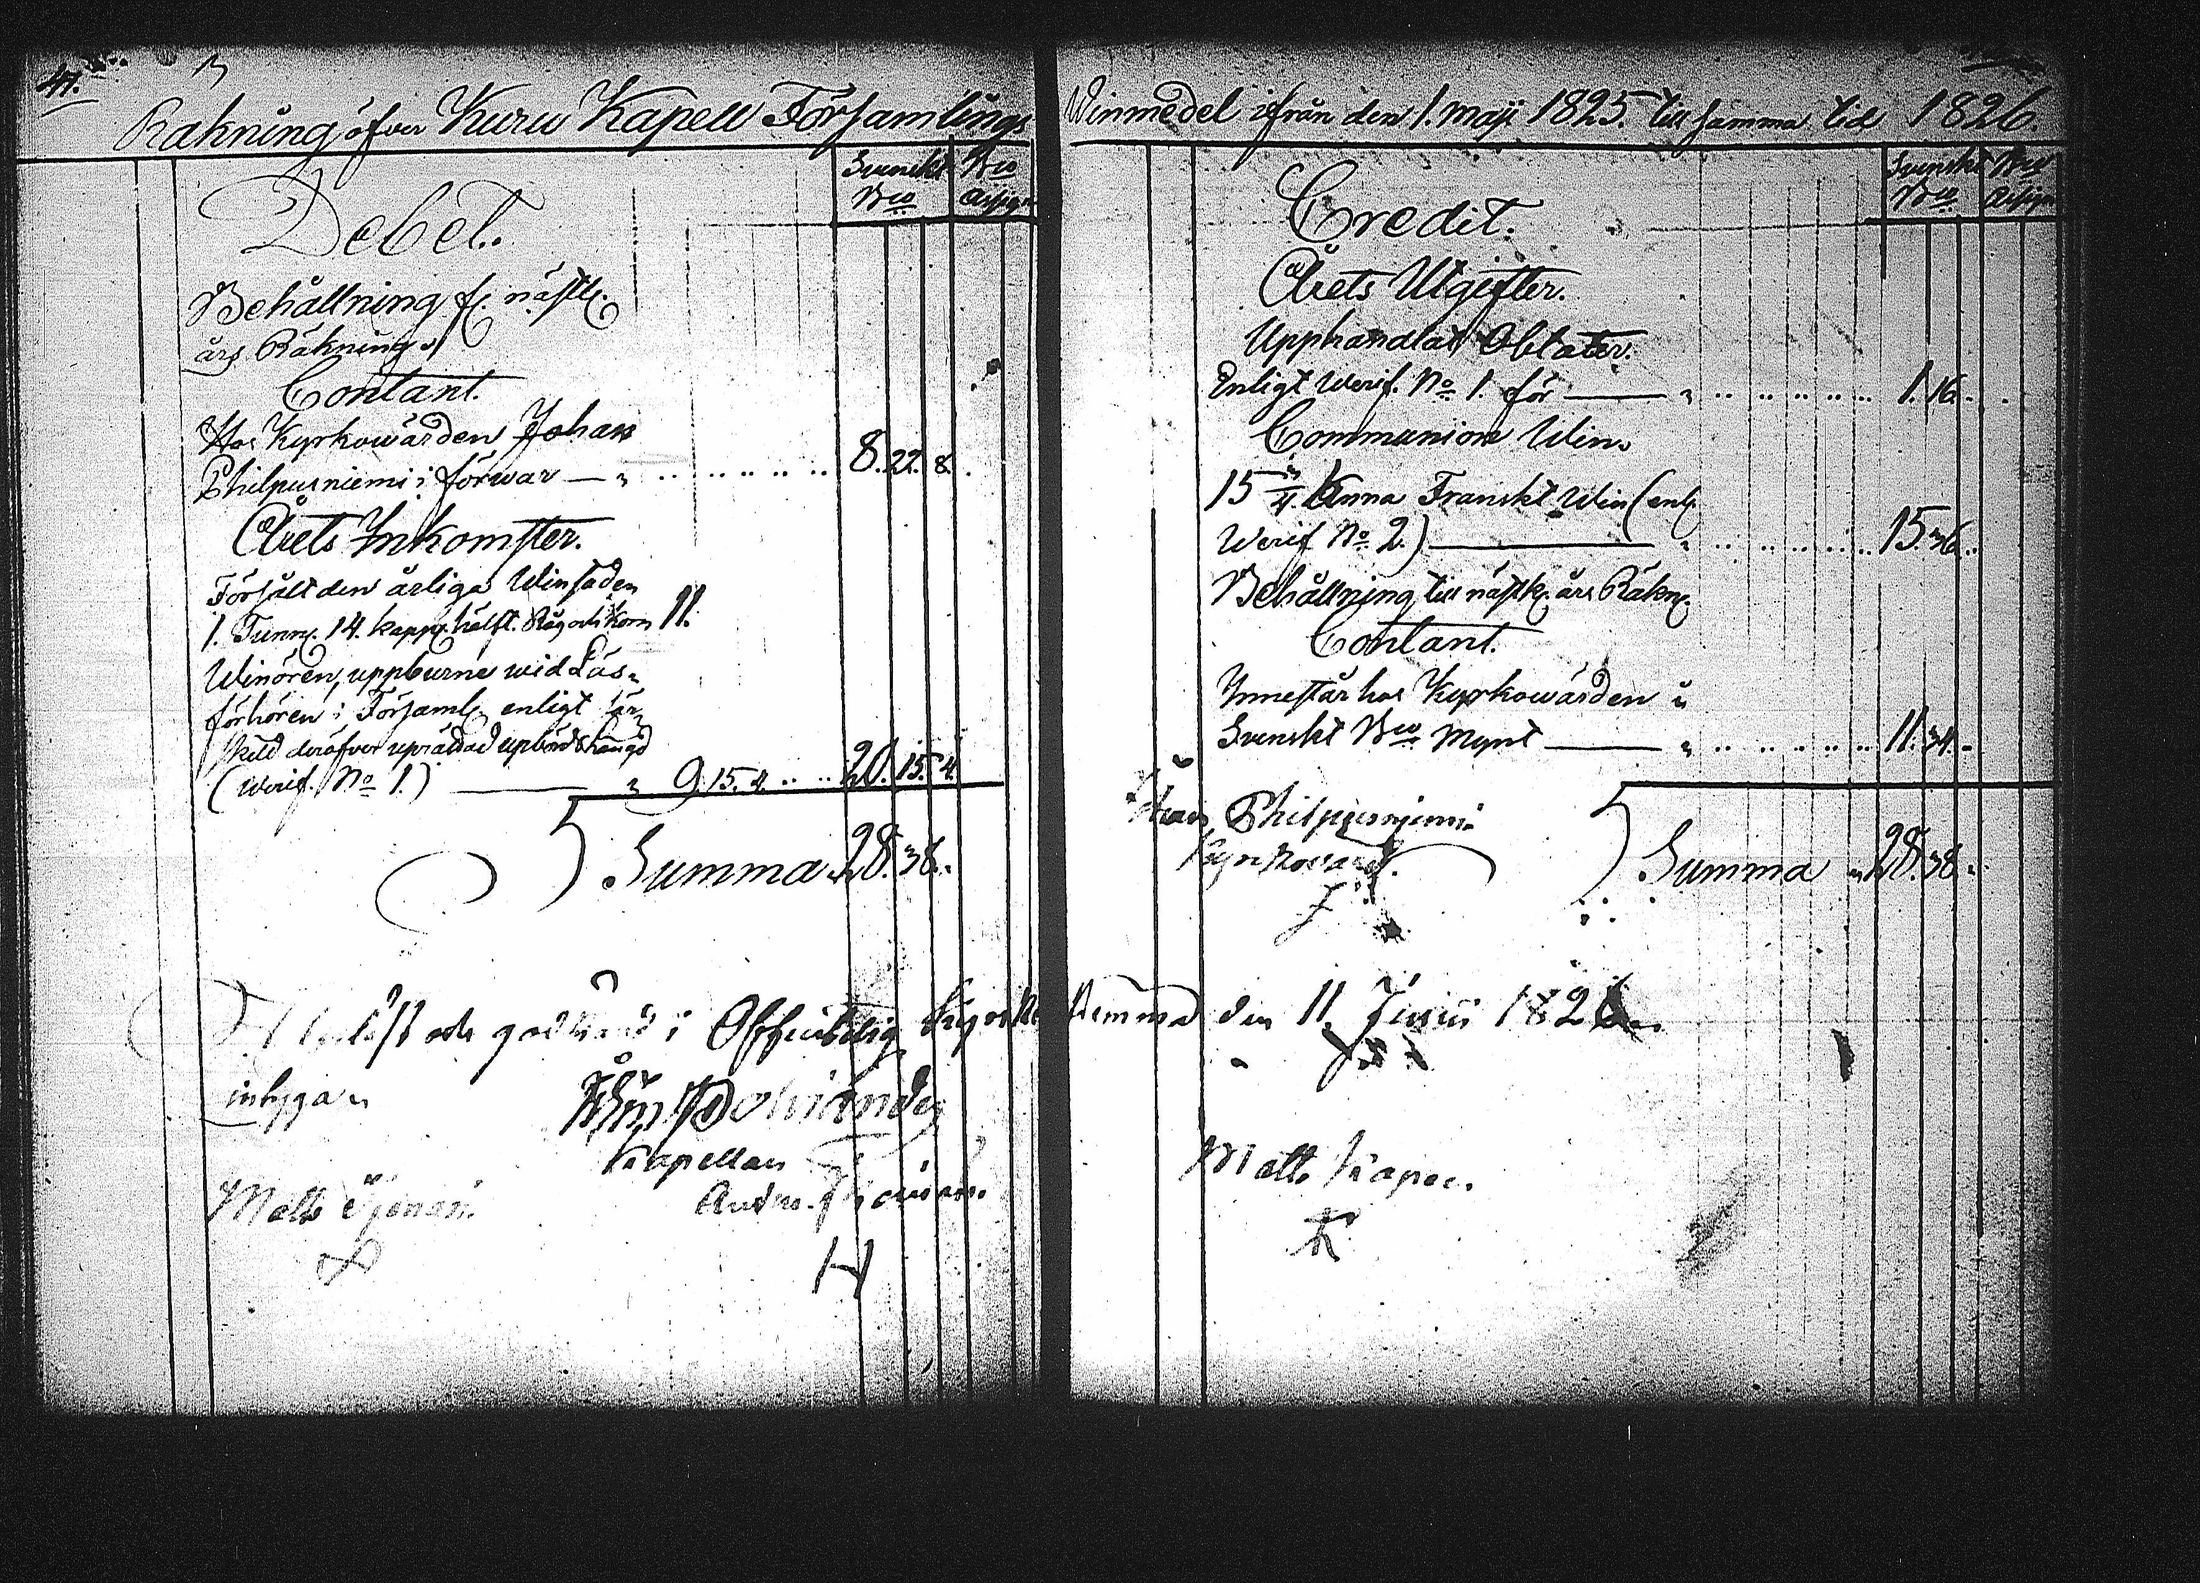 41.
Räkning öfver Kuru Kapell Församlings
Debet.
Svenskt Bco
Bco Assign
Behållning fr. nästl.
års Räkning.
Contant.
Hos Kyrkowärden Johan
Philpusniemi i förwar — " 8. 22. 8.
Årets Inkomster.
Försålt den årliga Winsäden
1. Tunn. 14. kapp. hälft. Råg och Korn 11.
Winören, uppburne wid Läs-
förhören i Församl. enligt sär-
skild deröfver uprättad upbörds längd
(Werif. No 1.) — " 9. 15. 4. 20. 15. 4.
Summa 28. 38. -
Upläst och godkänd i Offentelig Sockne
intygar
Kapellan
Matts
Andrs.
H
Winmedel ifrån den 1. Maji 1825. till samma tid 1826.
Credit.
Svenskt Bco
Bco Assign
Årets Utgifter.
Upphandlat Oblater.
Enligt Werif. No 1. för — " 1. 16. -
Communion Win.
15 3/4. Kanna Franskt Win (enl.
Werif No 2.) — " 15. 36. -
Behållning till nästk. års Räkn.
Contant.
Innestår hos Kyrkowärden i
Svenskt Bco Mynt — " 11. 34. -
Philpusniemi
Kyrkovärd.
Summa 28. 38. -
Stemma den 11. Junii 1826.
Matts